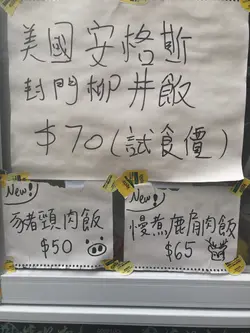 美國安格斯
封門柳丼飯
$70(試食價)
New!
豕者頸肉飯
$50
New!
慢煮鹿肩肉飯
$65